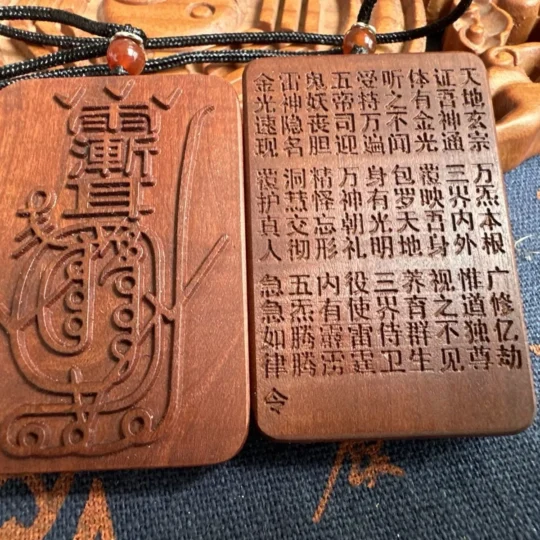 天地玄宗 万炁本根 广修亿劫
证吾神通 三界内外 惟道独尊
体有金光 覆映吾身 视之不见
听之不闻 包罗天地 养育群生
受持万遍 身有光明 三界侍卫
五帝司迎 万神朝礼 役使雷霆
鬼妖丧胆 精怪忘形 内有霹雳
雷神隐名 洞慧交彻 五炁腾腾
金光速现 覆护真人 急急如律令